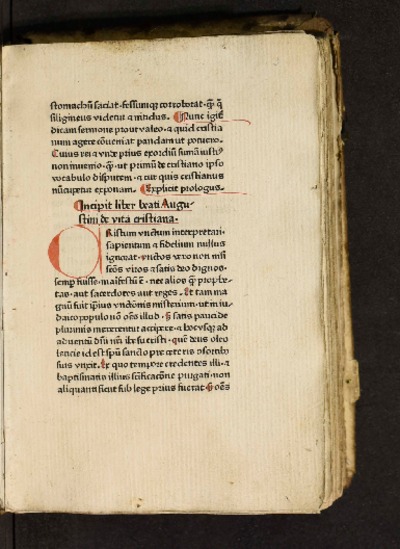 stomachū saciat· fessumqꝫ corroborat· qͫ q̄
siligineus videtur ⁊ nitidus· Nunc igiť
dicam sermone prout valeo· ⁊ quid cristia
num agere cōueniat pandam ut potuero·
Cuius rei ⁊ vnde prius exordiū sumā iusto
non inuenio· qͫ ut primū de cristiano ipso
vocabulo disputem· ⁊ cur quis cristianus
nūcupetur exponam· Explicit prologus·
Incipit liber beati Augu-
stini de vita cristiana·
CRistum vnctum interpretari·
sapientum ⁊ fidelium nullus
ignorat· vnctos vero non nisi
sc̄os viros ⁊ satis deo dignos·
semꝑ fuisse· maifestū ē· nec alios qͫ prophe-
tas· aut sacerdotes aut reges· Et tam ma
gnū fuit ip̄ius vnctionis misterium· ut in iu-
daico populo nō om̄s illud· sꝫ satis pauci de
plurimis mererentur accipere· ⁊ hocusqꝫ ad
aduentū dn̄i nr̄i ihesu cristi· quē deus oleo
leticie id est spū sancto pre ceteris consortibꝫ
suis vnxit· Ex quo tempore credentes illi· ⁊
baptismatis illius sc̄ificacōne purgati· non
aliqui sicut sub lege prius fuerat sꝫ om̄s